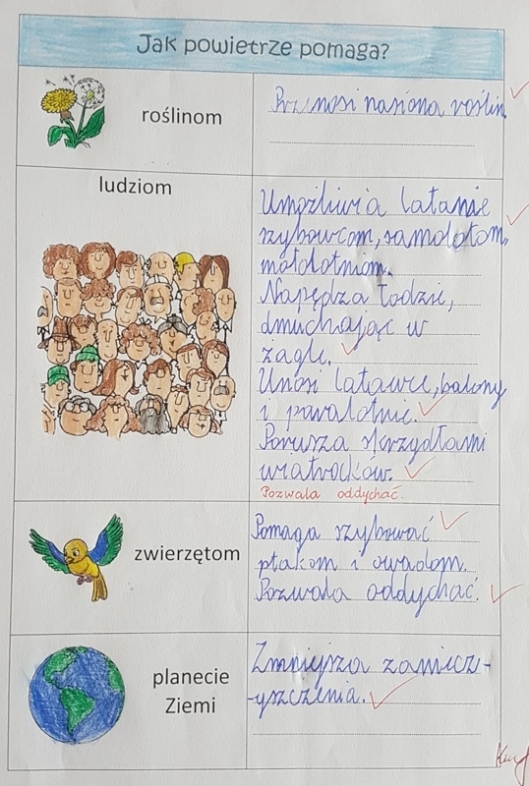 Jak powietrze pomaga?
roślinom
Przenosi nasiona roślin
ludziom
Umożliwia latanie
szybowcom, samolotom,
motolotniom.
Napędza łodzie,
dmuchając w
żagle.
Unosi latawce, balony
i paralotnie.
Porusza skrzydłami
wiatraków.
Pozwala oddychać.
zwierzętom
Pomaga szybować
ptakom i owadom.
Pozwala oddychać.
planecie
Ziemi
Zmniejsza zanieczy-
-yszczenia.